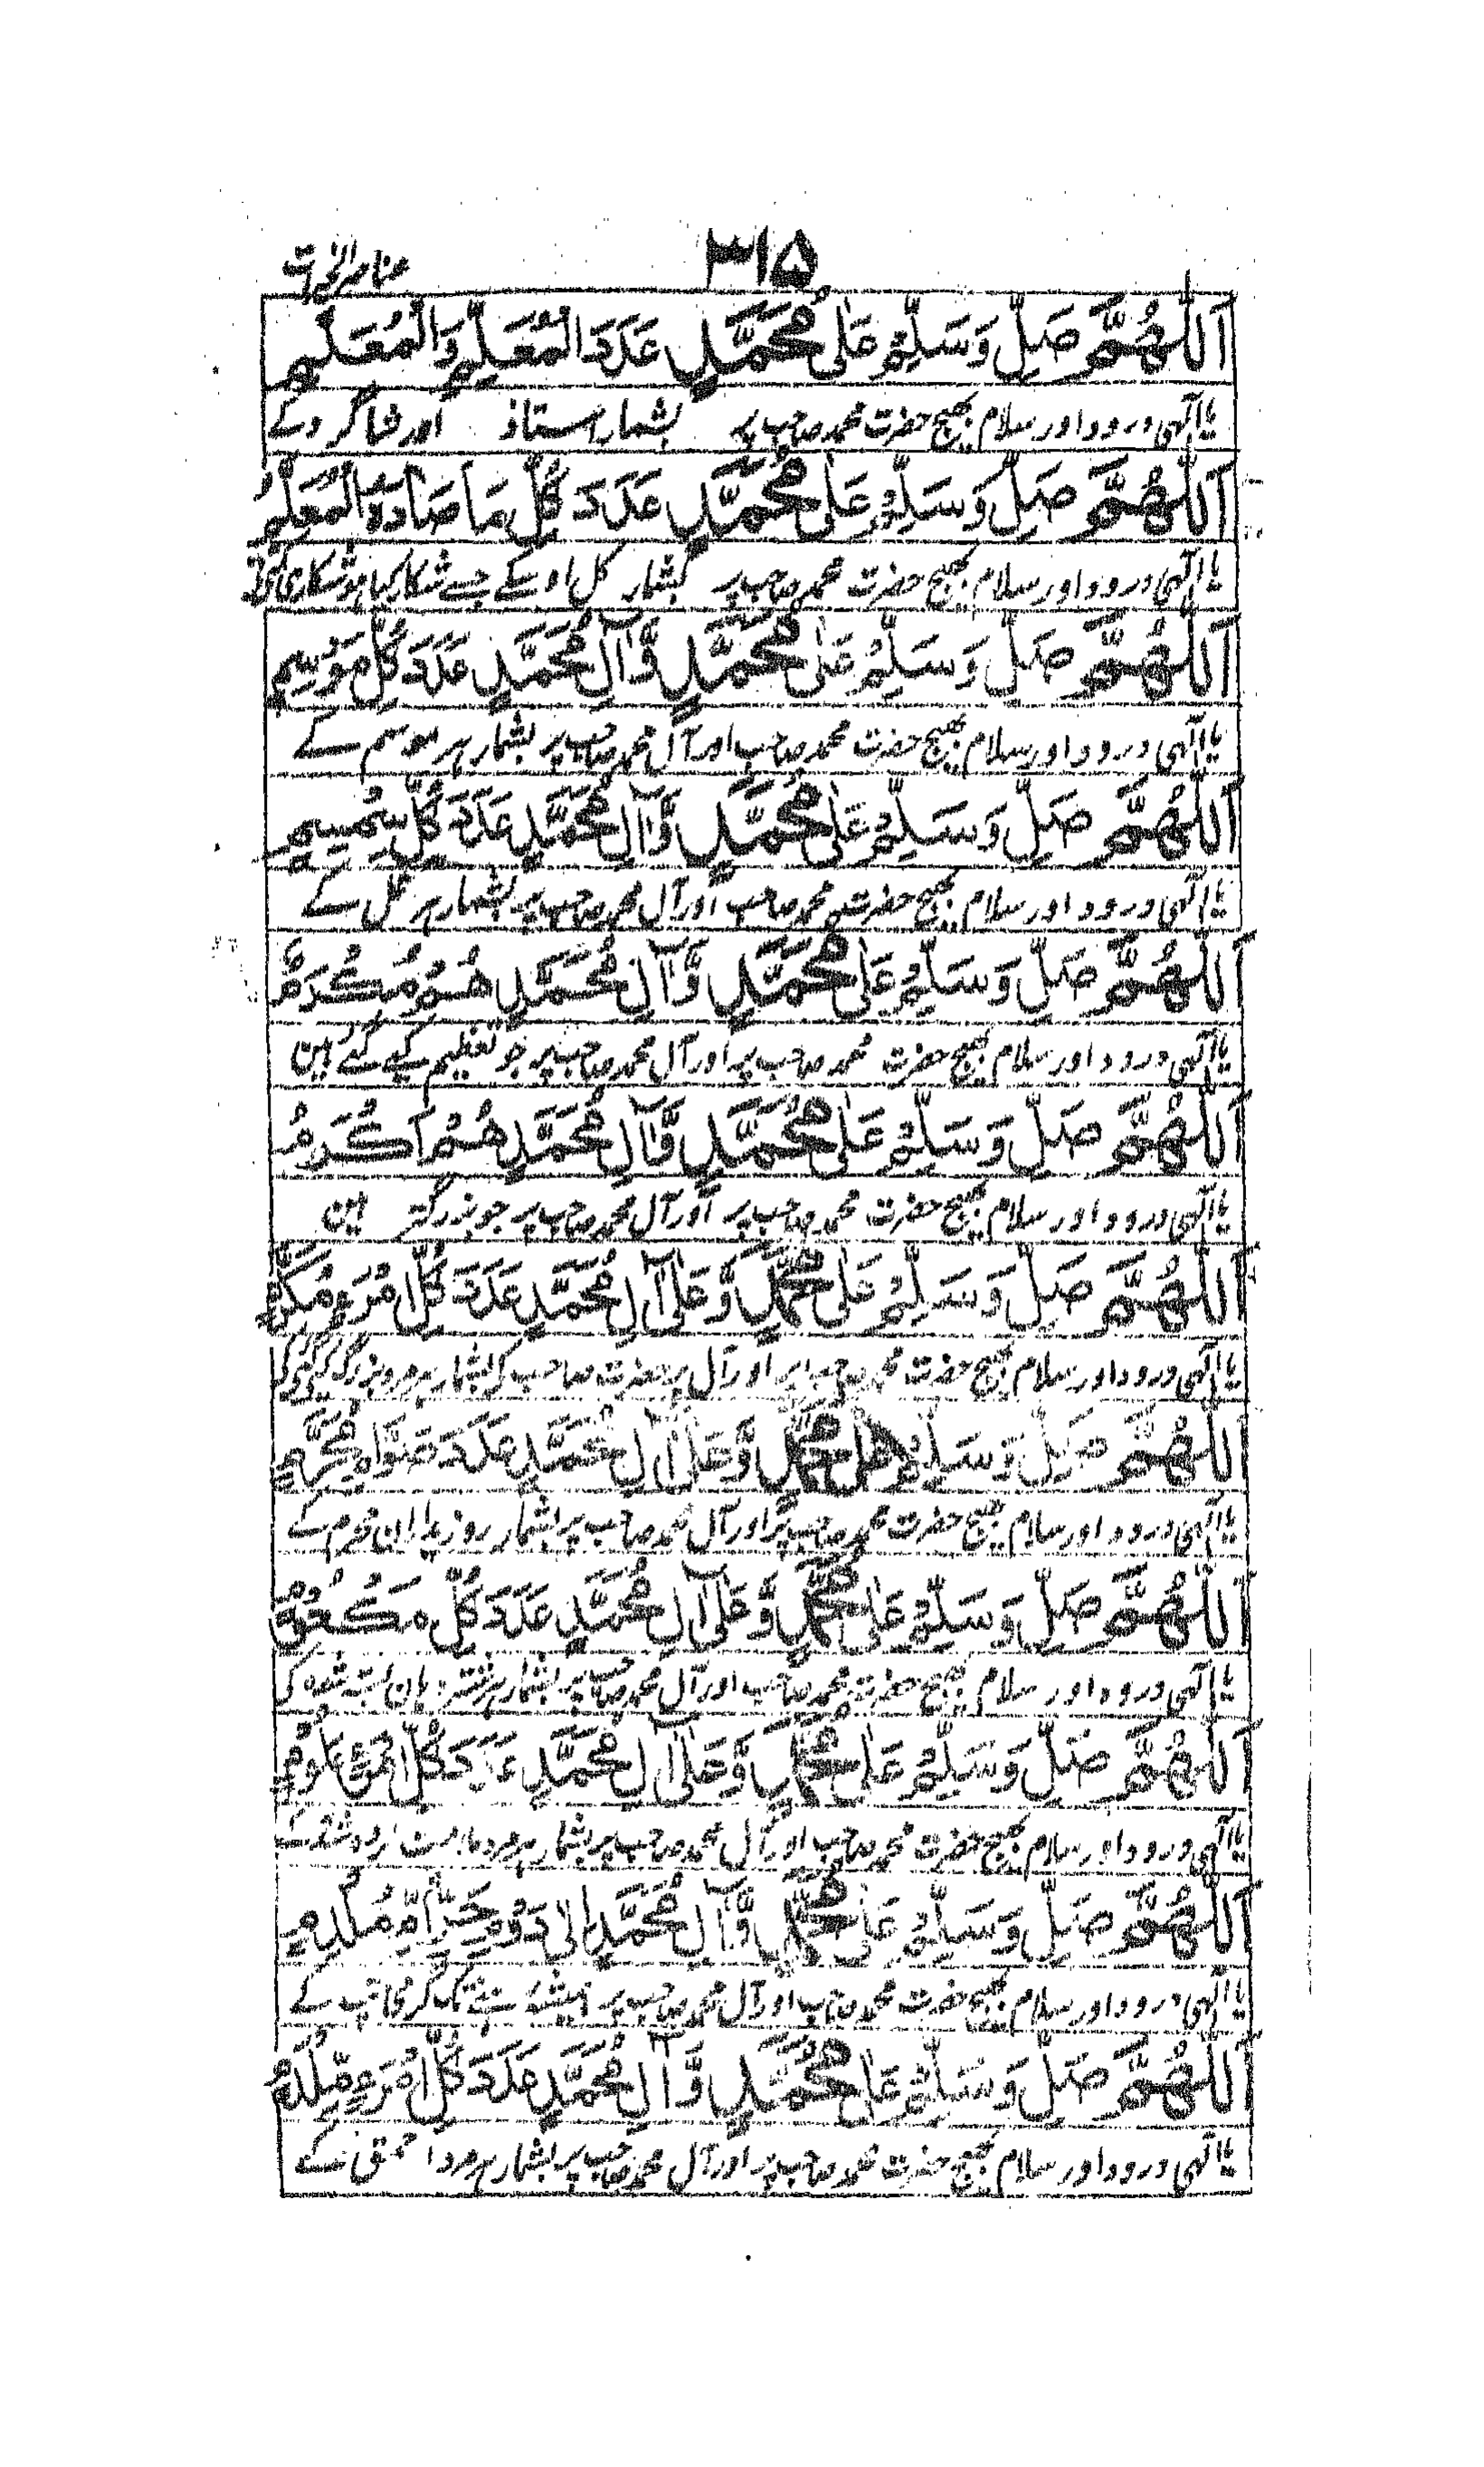 ۳۱۵
عناصر الخیرات
اَللّٰهُمَّ صَلِّ وَسَلِّمْ عَلٰی مُحَمَّدٍ عَدَدَ الْمُعَلِّمِ وَالْمُعَلَّمِ
یا الٰہی درود اور سلام بھیج حضرت محمد صاحب پر بشمار استاذ اور شاگرد کے
اَللّٰهُمَّ صَلِّ وَسَلِّمْ عَلٰی مُحَمَّدٍ عَدَدَ كُلِّ مَا صَادَهُ الْمُعَلَّمُ
یا الٰہی درود اور سلام بھیج حضرت محمد صاحب پر بشمار کل اوسکے جسے شکار کیا ہو شکاری
اَللّٰهُمَّ صَلِّ وَسَلِّمْ عَلٰی مُحَمَّدٍ وَّاٰلِ مُحَمَّدٍ عَدَدَ كُلِّ مَوْسِمٍ
یا الٰہی درود اور سلام بھیج حضرت محمد صاحب اور آل محمد صاحب پر بشمار ہر موسم کے
اَللّٰهُمَّ صَلِّ وَسَلِّمْ عَلٰی مُحَمَّدٍ وَّاٰلِ مُحَمَّدٍ عَدَدَ كُلِّ سِمْسِمٍ
یا الٰہی درود اور سلام بھیج حضرت محمد صاحب اور آل محمد صاحب پر بشمار ہر تل کے
اَللّٰهُمَّ صَلِّ وَسَلِّمْ عَلٰی مُحَمَّدٍ وَّاٰلِ مُحَمَّدٍ هُمْ مُكْرَمٌ
یا الٰہی درود اور سلام بھیج حضرت محمد صاحب پر اور آل محمد صاحب پر جو تعظیم کیے گئے ہین
اَللّٰهُمَّ صَلِّ وَسَلِّمْ عَلٰی مُحَمَّدٍ وَّاٰلِ مُحَمَّدٍ هُمْ اَكْرَمُ
یا الٰہی درود اور سلام بھیج حضرت محمد صاحب پر اور آل محمد صاحب پر جو بزرگتر ہین
اَللّٰهُمَّ صَلِّ وَسَلِّمْ عَلٰی مُحَمَّدٍ وَّعَلٰی اٰلِ مُحَمَّدٍ عَدَدَ كُلِّ امْرَءٍ
یا الٰہی درود اور سلام بھیج حضرت محمد صاحب پر اور آل پر حضرت صاحب کی بشمار ہر مرد
اَللّٰهُمَّ صَلِّ وَسَلِّمْ عَلٰی مُحَمَّدٍ وَّعَلٰی اٰلِ مُحَمَّدٍ عَدَدَ صَوَّامِ مُحَرَّمٍ
یا الٰہی درود اور سلام بھیج حضرت محمد صاحب پر اور آل محمد صاحب پر بشمار روزہ داران محرم کے
اَللّٰهُمَّ صَلِّ وَسَلِّمْ عَلٰی مُحَمَّدٍ وَّعَلٰی اٰلِ مُحَمَّدٍ عَدَدَ كُلِّ
یا الٰہی درود اور سلام بھیج حضرت محمد صاحب اور آل محمد صاحب پر بشمار ہر شتر دہان بستہ شدہ کی
اَللّٰهُمَّ صَلِّ وَسَلِّمْ عَلٰی مُحَمَّدٍ وَّعَلٰی اٰلِ مُحَمَّدٍ عَدَدَ كُلِّ
یا الٰہی درود اور سلام بھیج حضرت محمد صاحب اور آل محمد صاحب پر بشمار ہر مرد
اَللّٰهُمَّ صَلِّ وَسَلِّمْ عَلٰی مُحَمَّدٍ وَّاٰلِ مُحَمَّدٍ
یا الٰہی درود اور سلام بھیج حضرت محمد صاحب اور آل محمد صاحب پر
اَللّٰهُمَّ صَلِّ وَسَلِّمْ عَلٰی مُحَمَّدٍ وَّاٰلِ مُحَمَّدٍ عَدَدَ كُلِّ امْرَءٍ
یا الٰہی درود اور سلام بھیج حضرت محمد صاحب پر اور آل محمد صاحب پر بشمار ہر مرد احمق کے